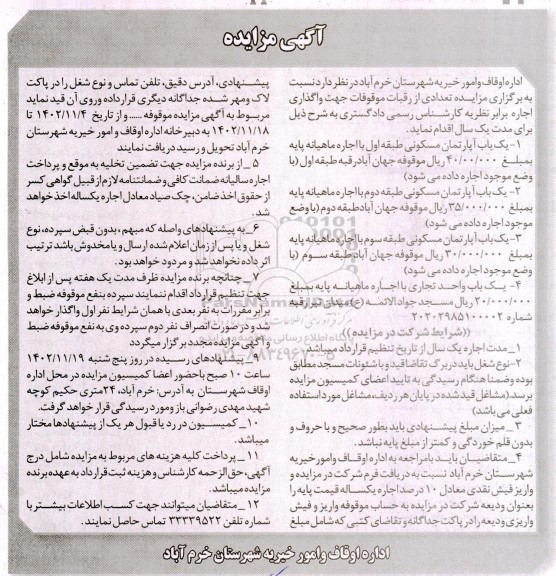 آگهی مزایده
اداره اوقاف و امور خیریه شهرستان خرم آباد در نظر دارد نسبت
به برگزاری مزایده تعدادی از رقبات موقوفات جهت واگذاری
اجاره برابر نظریه کارشناس رسمی دادگستری به شرح ذیل
برای مدت یک سال اقدام نماید.
۱-یک باب آپارتمان مسکونی طبقه اول با اجاره ماهیانه پایه
بمبلغ ۴۰/۰۰۰/۰۰۰ ریال موقوفه جهان آباد رقبه طبقه اول (با
وضع موجود اجاره داده می شود)
۲-یک باب آپارتمان مسکونی طبقه دوم با اجاره ماهیانه پایه
بمبلغ ۳۵/۰۰۰/۰۰۰ ریال موقوفه جهان آباد طبقه دوم (با وضع
موجود اجاره داده می شود)
۳-یک باب آپارتمان مسکونی طبقه سوم با اجاره ماهیانه پایه
بمبلغ ۳۰/۰۰۰/۰۰۰ ریال موقوفه جهان آباد طبقه سوم (با
وضع موجود اجاره داده می شود)
۴- یک باب واحد تجاری با اجاره ماهیانه پایه بمبلغ
۲۰/۰۰۰/۰۰۰ ریال مسجد جوادالائمه (ع) سیدنر نبر رقبه
شماره ۲۰۲۰۲۹۸۵۱۰۰۰۰۲
((شرایط شرکت در مزایده))
۱_مدت اجاره یک سال از تاریخ تنظیم قرارداد میباشد
۲-نوع شغل باید در برگ تقاضا قید و با شئونات مسجد مطابق
بوده و ضمنا هنگام رسیدگی به تایید اعضای کمیسیون مزایده
برسد.(مشاغل قید شده در پایان هر ردیف، مشاغل مورد استفاده
فعلی می باشد)
۳_ میزان مبلغ پیشنهادی باید بطور صحیح و با حروف و
بدون قلم خوردگی و کمتر از مبلغ پایه نباشد.
۴_ متقاضیان باید با مراجعه به اداره اوقاف و امور خیریه
شهرستان خرم آباد نسبت به دریافت فرم شرکت در مزایده و
واریز فیش نقدی معادل ۱۰ درصد اجاره یکساله قیمت پایه را
بعنوان ودیعه شرکت در مزایده به حساب موقوفه واریز و فیش
واریزی ودیعه را در پاکت جداگانه و تقاضای کتبی که شامل مبلغ
پیشنهادی، آدرس دقیق، تلفن تماس و نوع شغل را در پاکت
لاک و مهر شده جداگانه دیگری قرار داده و روی آن قید نماید
مربوط به آگهی مزایده موقوفه ...... و از تاریخ ۱۴۰۲/۱۱/۴ تا
۱۴۰۲/۱۱/۱۸ به دبیرخانه اداره اوقاف و امور خیریه شهرستان
خرم آباد تحویل و رسید دریافت نمایند
۵_ از برنده مزایده جهت تضمین تخلیه به موقع و پرداخت
اجاره سالیانه ضمانت کافی و ضمانتنامه لازم از قبیل گواهی کسر
از حقوق اخذ ضامن، چک صیاد معادل اجاره یکساله اخذ خواهد
شد.
۶_ به پیشنهادهای واصله که مبهم، بدون قبض سپرده، نوع
شغل و یا پس از زمان اعلام شده ارسال و یا مخدوش باشد ترتیب
اثر داده نخواهد شد و مردود خواهد بود.
۷_ چنانچه برنده مزایده ظرف مدت یک هفته پس از ابلاغ
جهت تنظیم قرارداد اقدام ننمایند سپرده بنفع موقوفه ضبط و
برابر مقررات به نفر بعدی با همان شرایط نفر اول واگذار خواهد
شد و در صورت انصراف نفر دوم سپرده وی به نفع موقوفه ضبط
و آگهی مزایده مجدد برگزار میگردد
۹_ پیشنهادهای رسیده در روز پنج شنبه ۱۴۰۲/۱۱/۱۹
ساعت ۱۰ صبح با حضور اعضا کمیسیون مزایده در محل اداره
اوقاف شهرستان به آدرس: خرم آباد، ۲۴متری حکیم کوچه
شهید مهدی رضوانی باز و مورد رسیدگی قرار خواهد گرفت.
۱۰_ کمیسیون در رد یا قبول هر یک از پیشنهادها مختار
میباشد.
۱۱_ پرداخت کلیه هزینه های مربوط به مزایده شامل درج
آگهی، حق الزحمه کارشناس و هزینه ثبت قرارداد به عهده برنده
مزایده میباشد.
۱۲_ متقاضیان میتوانند جهت کسب اطلاعات بیشتر با
شماره تلفن ۳۳۳۳۹۵۲۲ تماس حاصل نمایند.
اداره اوقاف و امور خیریه شهرستان خرم آباد